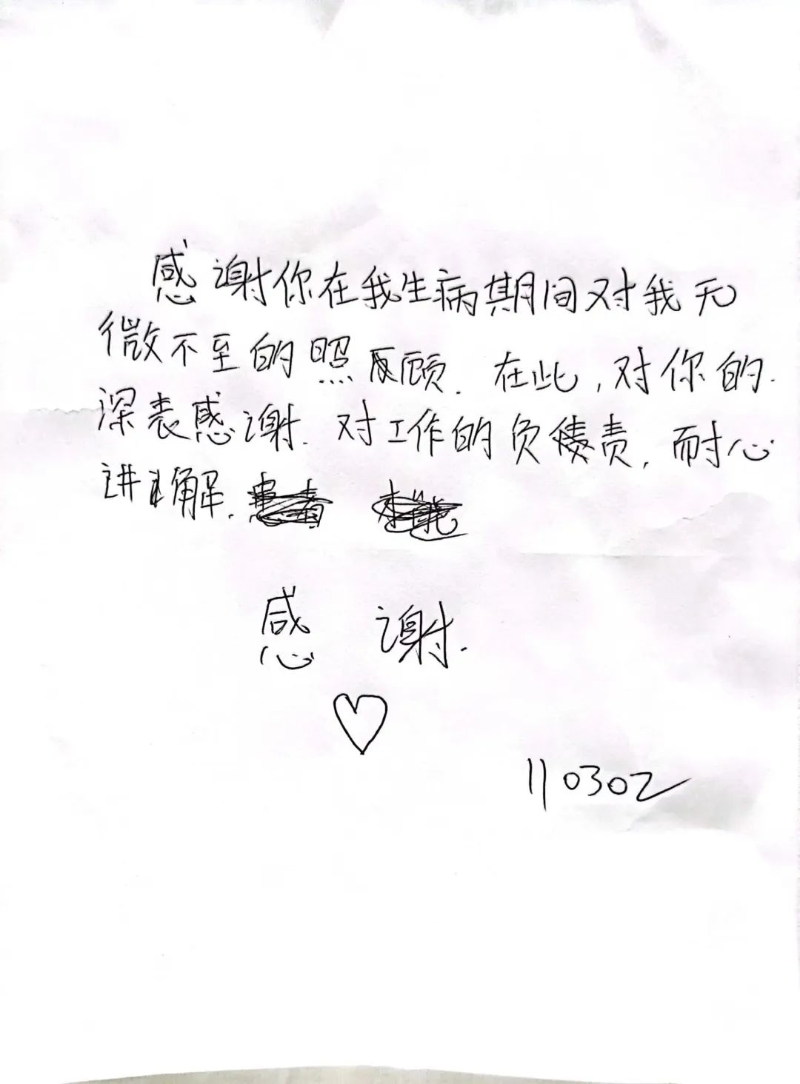 感谢你在我生病期间对我无
微不至的照顾.在此,对你的.
深表感谢.对工作的负责,耐心
讲解.
感 谢.
♡
110302